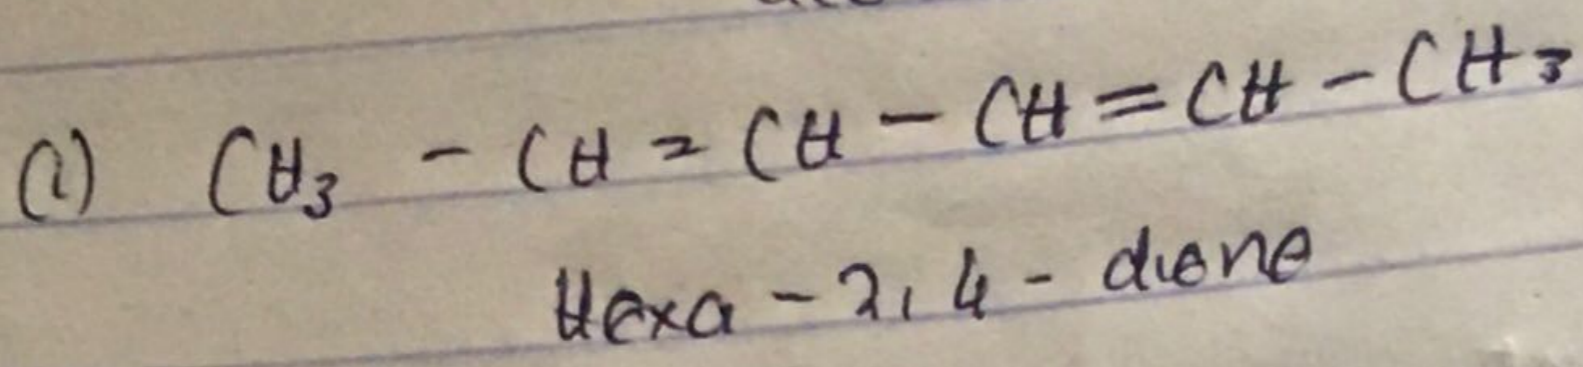 (i) CH3 - CH = CH - CH = CH - CH3
Hexa - 2,4 - diene